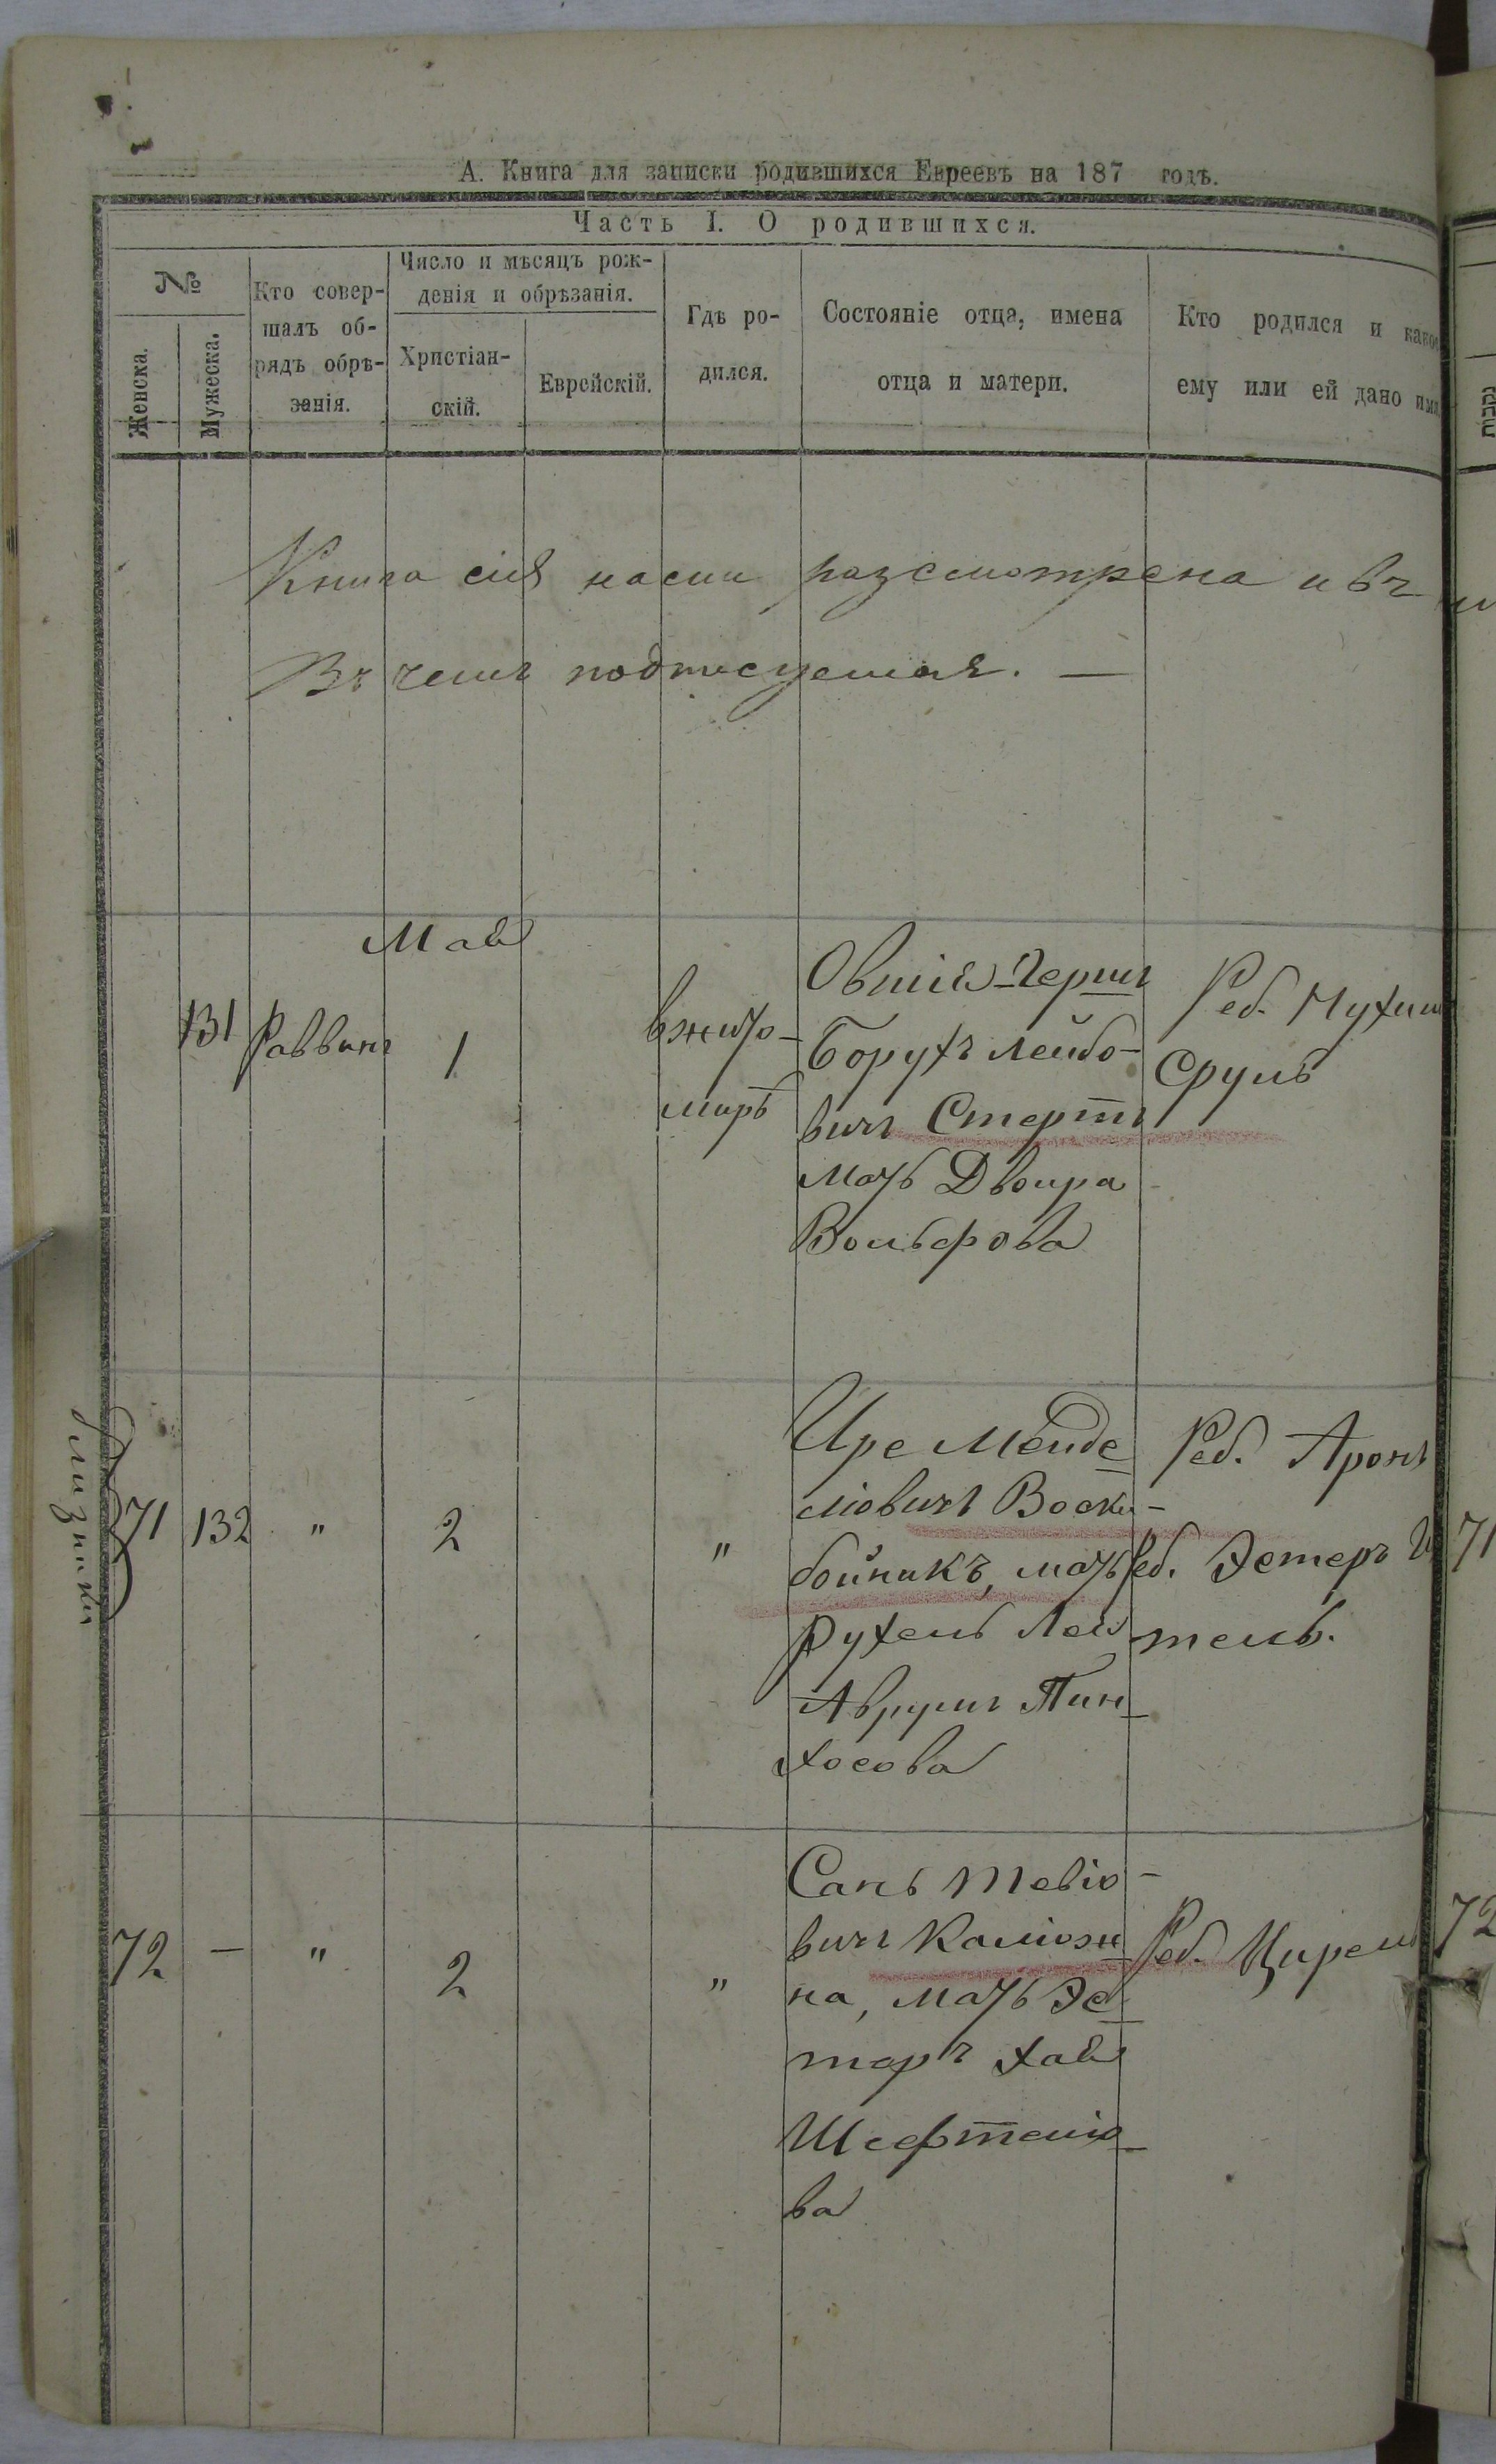 А. Книга для записки родившихся Евреевъ на 187 годъ.
Часть I. О родившихся.
№
Женска.
Мужеска.
Кто совер-
шалъ об-
рядъ обрѣ-
занія.
Число и мѣсяцъ рож-
денія и обрѣзанія.
Христіан-
скій.
Еврейскій.
Гдѣ ро-
дился.
Состояніе отца, имена
отца и матери.
Кто родился и какое
ему или ей дано имя
Книга сія нами разсмотрена и въ
Въ чемъ подписуемся. —
Мая
131
Раввинъ
1
вжито-
миръ
Овшія-Герш
Борухъ Лейбо-
вичъ Стертъ
мать Двойра
Вольфова
Реб. Нухим
Сруль
Близники
71
132
"
2
"
Ире Менде
ліовичъ Воско-
бойникъ, мать
Рухель Лея
Аврумъ Пин-
хосова
Реб. Аронъ
Реб. Эстеръ И
тель.
71
72
—
"
2
"
Сань Тевіо-
вичъ Каліон
на, мать Эс-
теръ Хая
Шефтеліо-
ва
Реб. Цирель
72